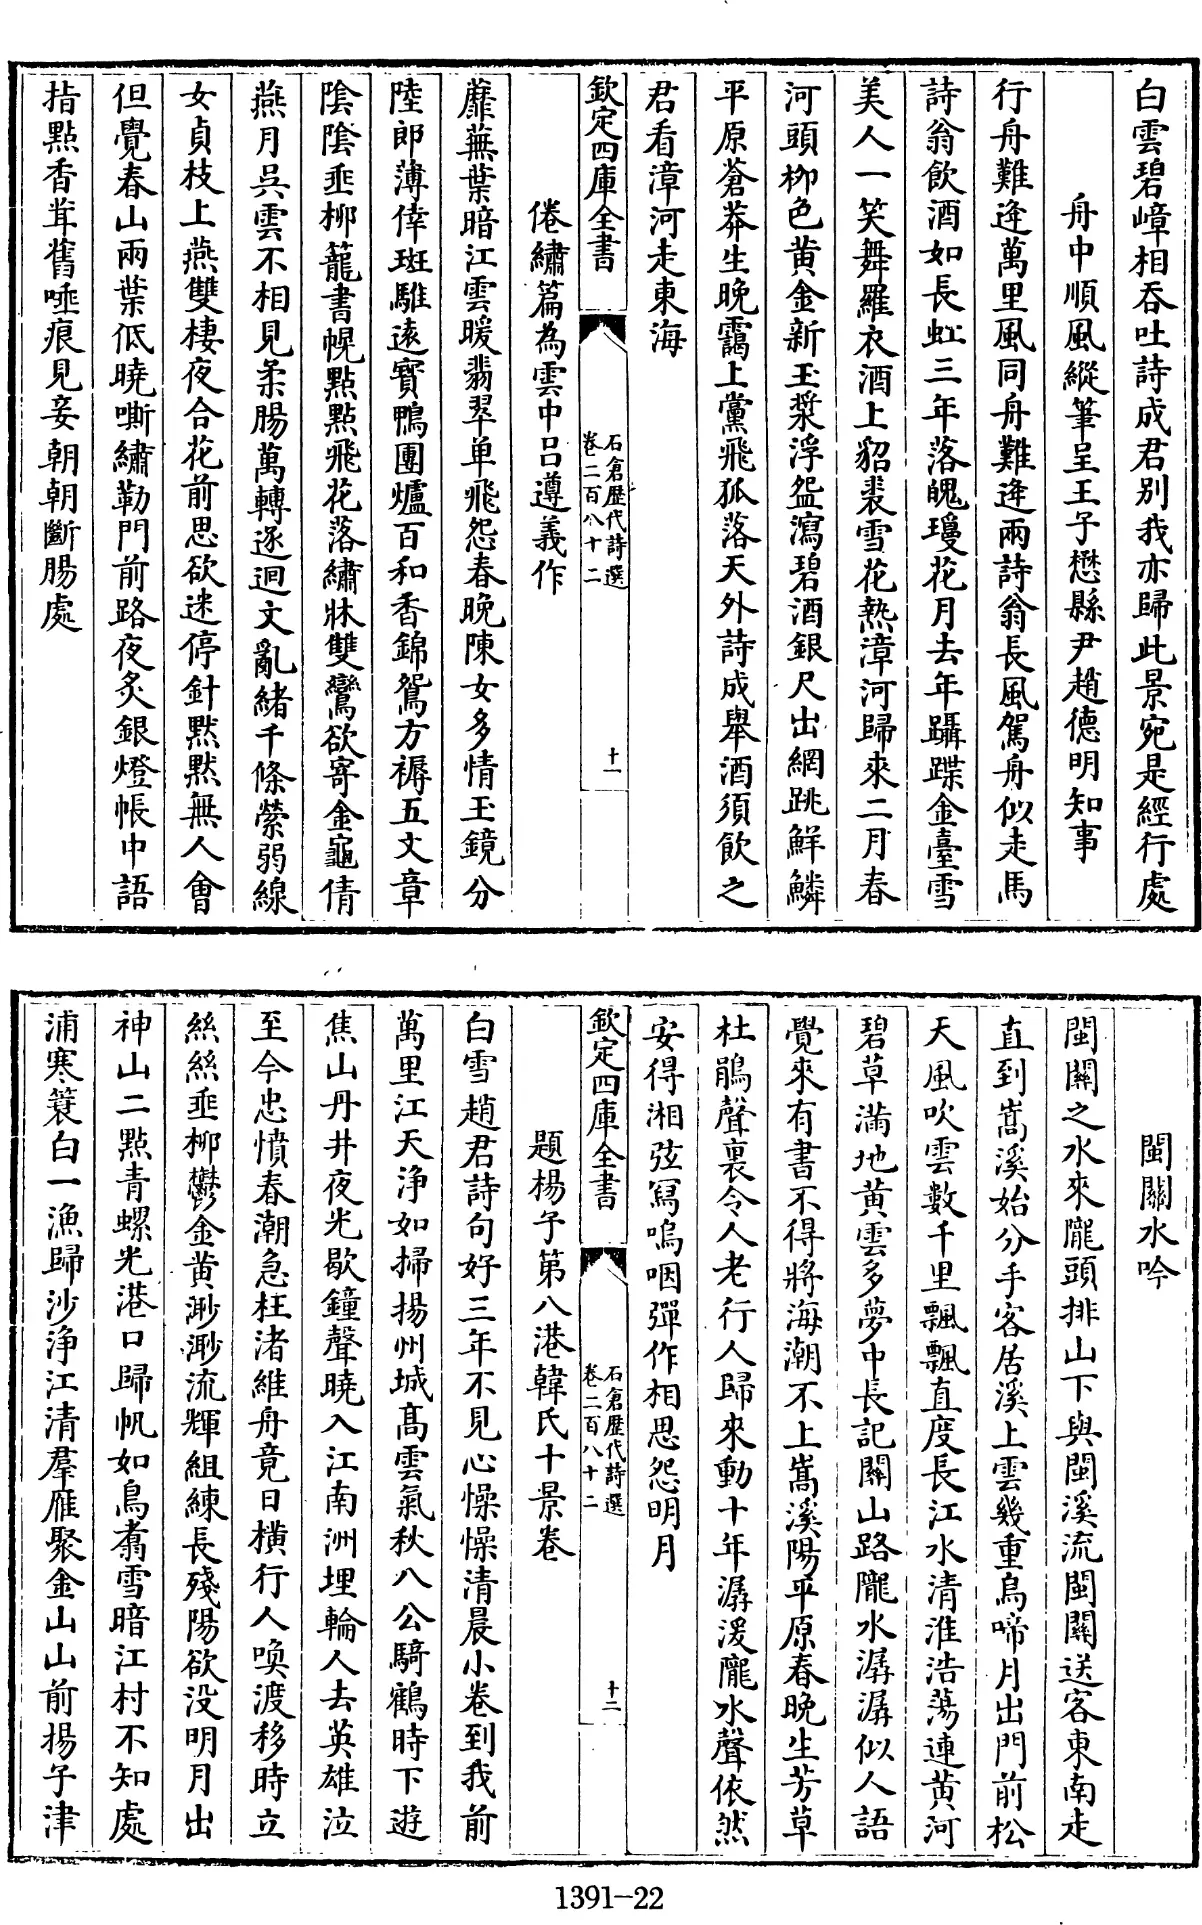 白雲碧嶂相吞吐詩成君别我亦歸此景宛是經行處
舟中順風縱筆呈王子懋縣尹趙德明知事
行舟難逢萬里風同舟難逢兩詩翁長風駕舟似走馬
詩翁飲酒如長虹三年落魄瓊花月去年躡蹀金臺雪
美人一笑舞羅衣酒上貂裘雪花熱漳河歸來二月春
河頭栁色黄金新玉漿浮盌瀉碧酒銀尺出網跳鮮鱗
平原蒼莽生晚靄上黨飛狐落天外詩成舉酒須飲之
君看漳河走東海
欽定四庫全書
石倉歴代詩選
卷二百八十二
十一
倦繡篇為雲中吕遵義作
蘼蕪葉暗江雲暖翡翠单飛怨春晚陳女多情玉鏡分
陸郎薄倖斑騅逺寳鴨團爐百和香錦鴛方褥五文章
陰陰垂柳籠書幌點點飛花落繡牀雙鸞欲寄金龜倩
燕月吳雲不相見柔腸萬轉逐迴文亂緒千條縈弱線
女貞枝上燕雙棲夜合花前思欲迷停針黙黙無人會
但覺春山兩葉低曉嘶繡勒門前路夜炙銀燈帳中語
指點香茸舊唾痕見妾朝朝斷腸處
閩關水吟
閩關之水來隴頭排山下與閩溪流閩關送客東南走
直到嵩溪始分手客居溪上雲幾重烏啼月出門前松
天風吹雲數千里飄飄直度長江水清淮浩蕩連黄河
碧草滿地黄雲多夢中長記關山路隴水潺潺似人語
覺來有書不得將海潮不上嵩溪陽平原春晚生芳草
杜鵑聲裏令人老行人歸來動十年潺湲隴水聲依然
安得湘弦冩嗚咽彈作相思怨明月
欽定四庫全書
石倉歴代詩選
卷二百八十二
十二
題楊子第八港韓氏十景卷
白雪趙君詩句好三年不見心懆懆清晨小卷到我前
萬里江天浄如掃揚州城髙雲氣秋八公騎鶴時下遊
焦山丹井夜光歇鐘聲曉入江南洲埋輪人去英雄泣
至今忠憤春潮急枉渚維舟竟日横行人喚渡移時立
絲絲垂柳鬱金黄渺渺流輝組練長殘陽欲没明月出
神山二點青螺光港口歸帆如鳥翥雪暗江村不知處
浦寒簑白一漁歸沙浄江清羣雁聚金山山前揚子津
1391-22